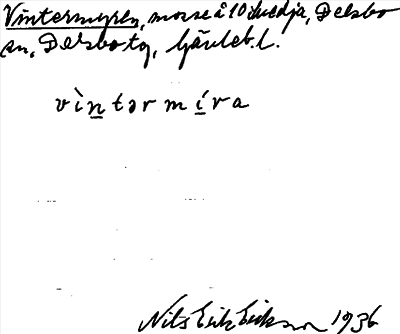 Vintermyren, mosse å 10 Svedja, Delsbo
sn, Delsbo tg, Gävleb. l.
vìntərmíra
Nils Erik Erikson 1936